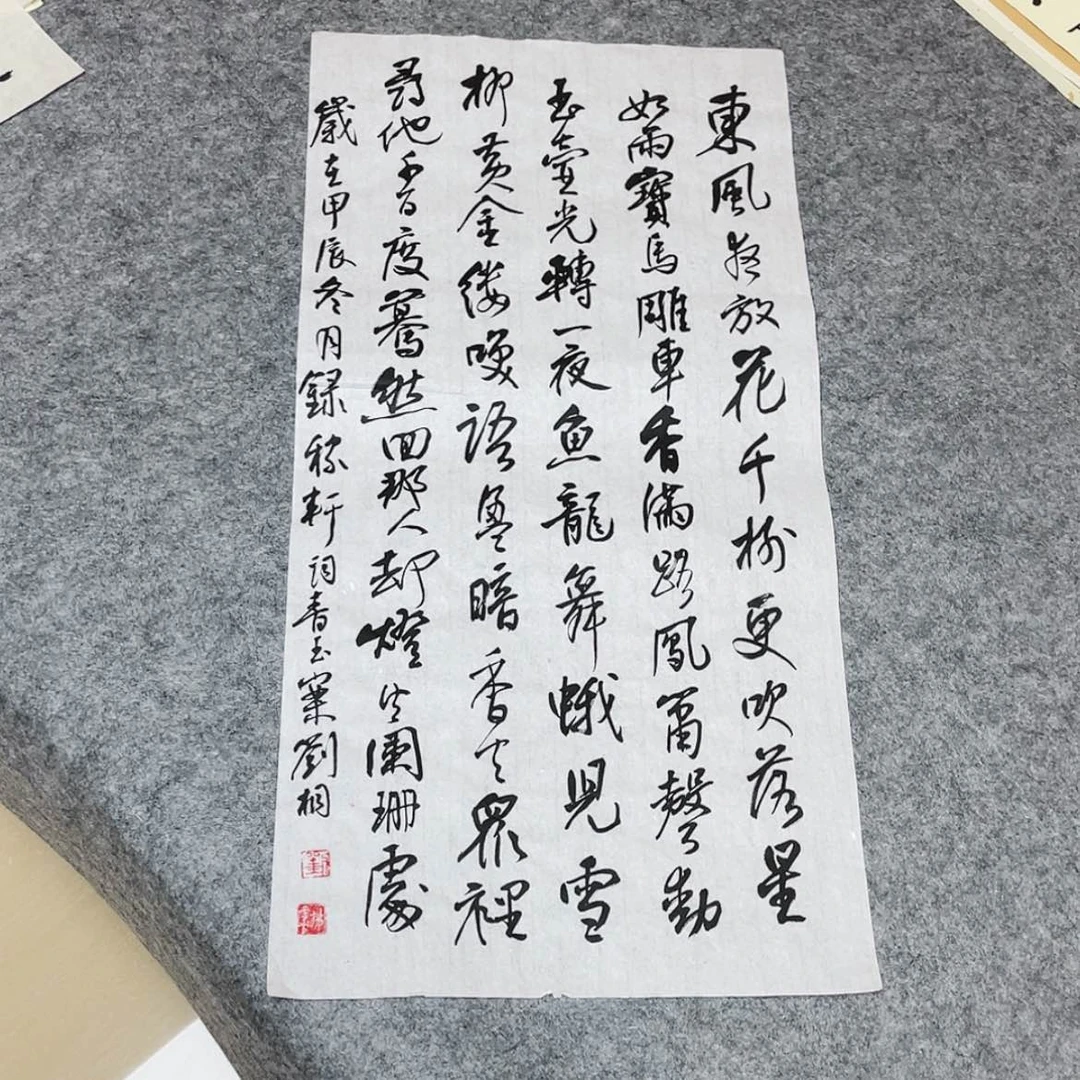 東風夜放花千樹更吹落星
如雨寶馬雕車香滿路鳳簫聲動
玉壺光轉一夜魚龍舞蛾兒雪
柳黃金縷咲語盈暗香去眾裡
尋他千百度驀然回那人却燈火闌珊處
歲在甲辰冬月録稼軒詞青玉案劉桐